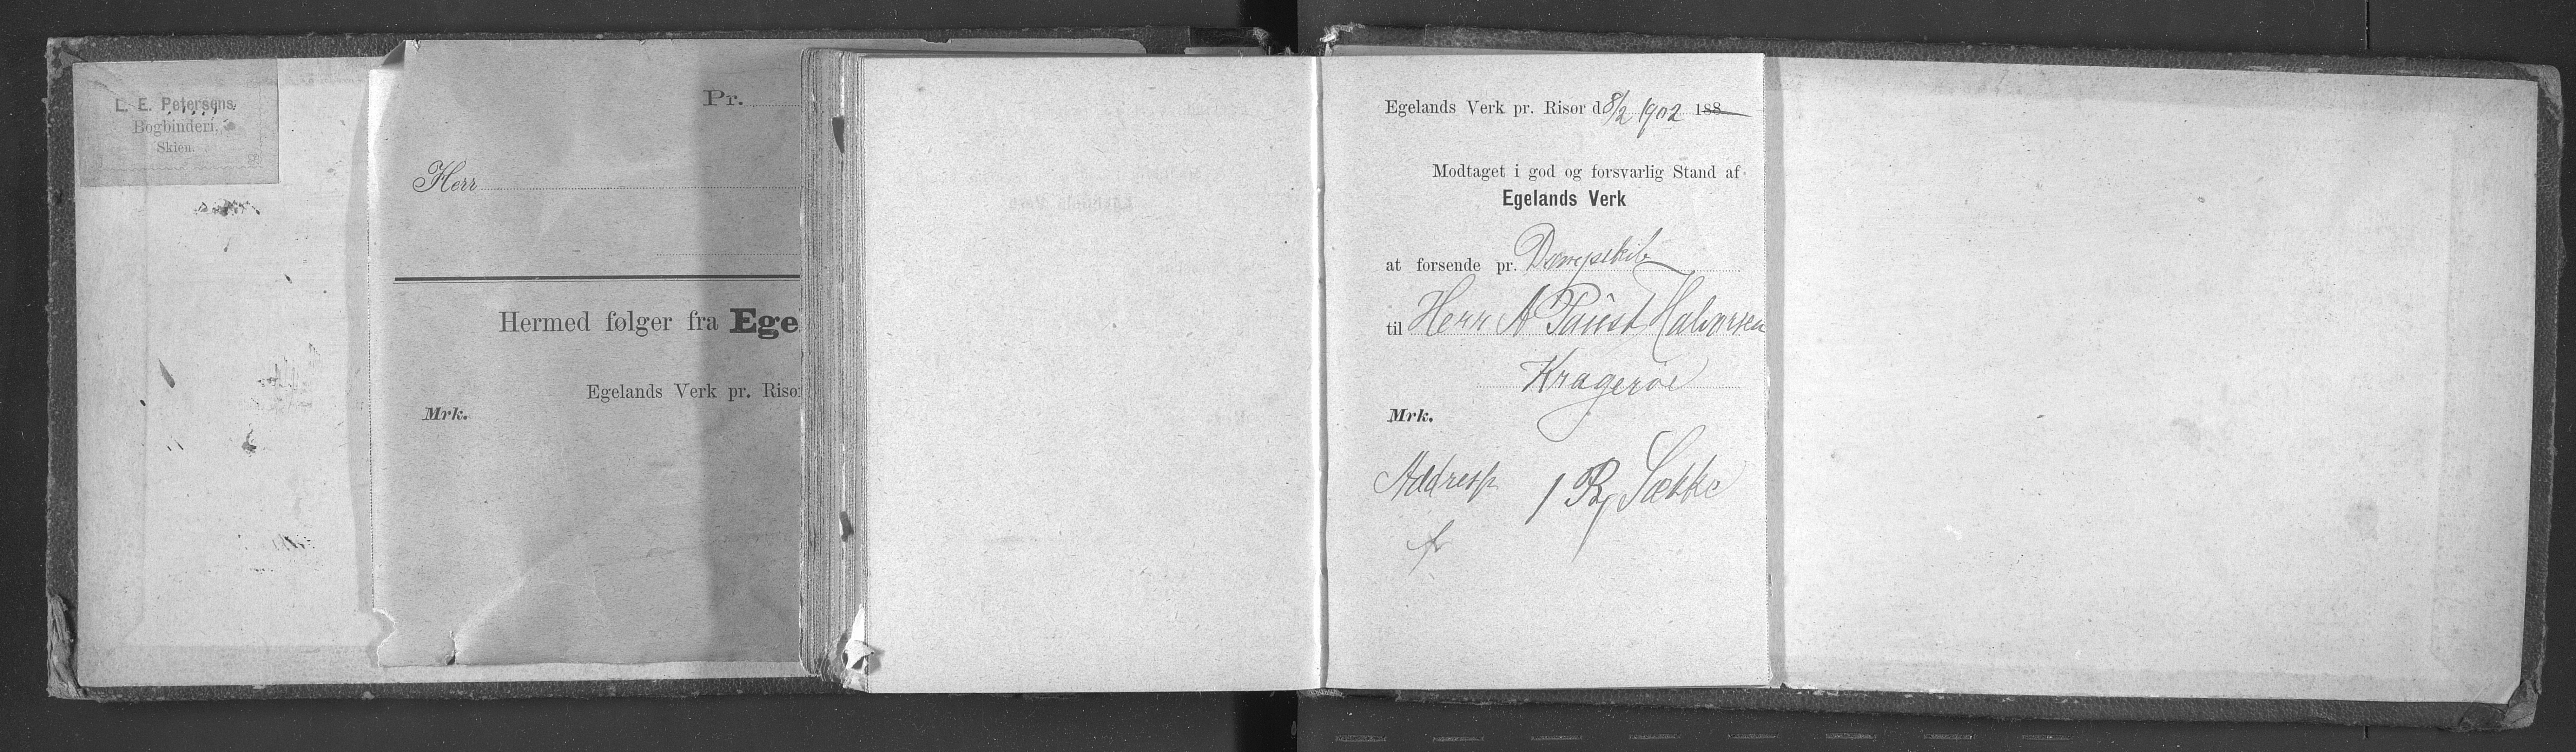 L. E. Petersens
Bogbinderi,
Skien.
Pr.
Herr
Hermed følger fra Ege
Egelands Verk pr. Risø
Mrk.
Egelands Verk pr. Risør d 8/2 1902 188
Modtaget i god og forsvarlig Stand af
Egelands Verk
at forsende pr. Dampskib
til Herr A Paust Halvorsen
Kragerøe
Mrk.
Addresse 1 Sække
fr